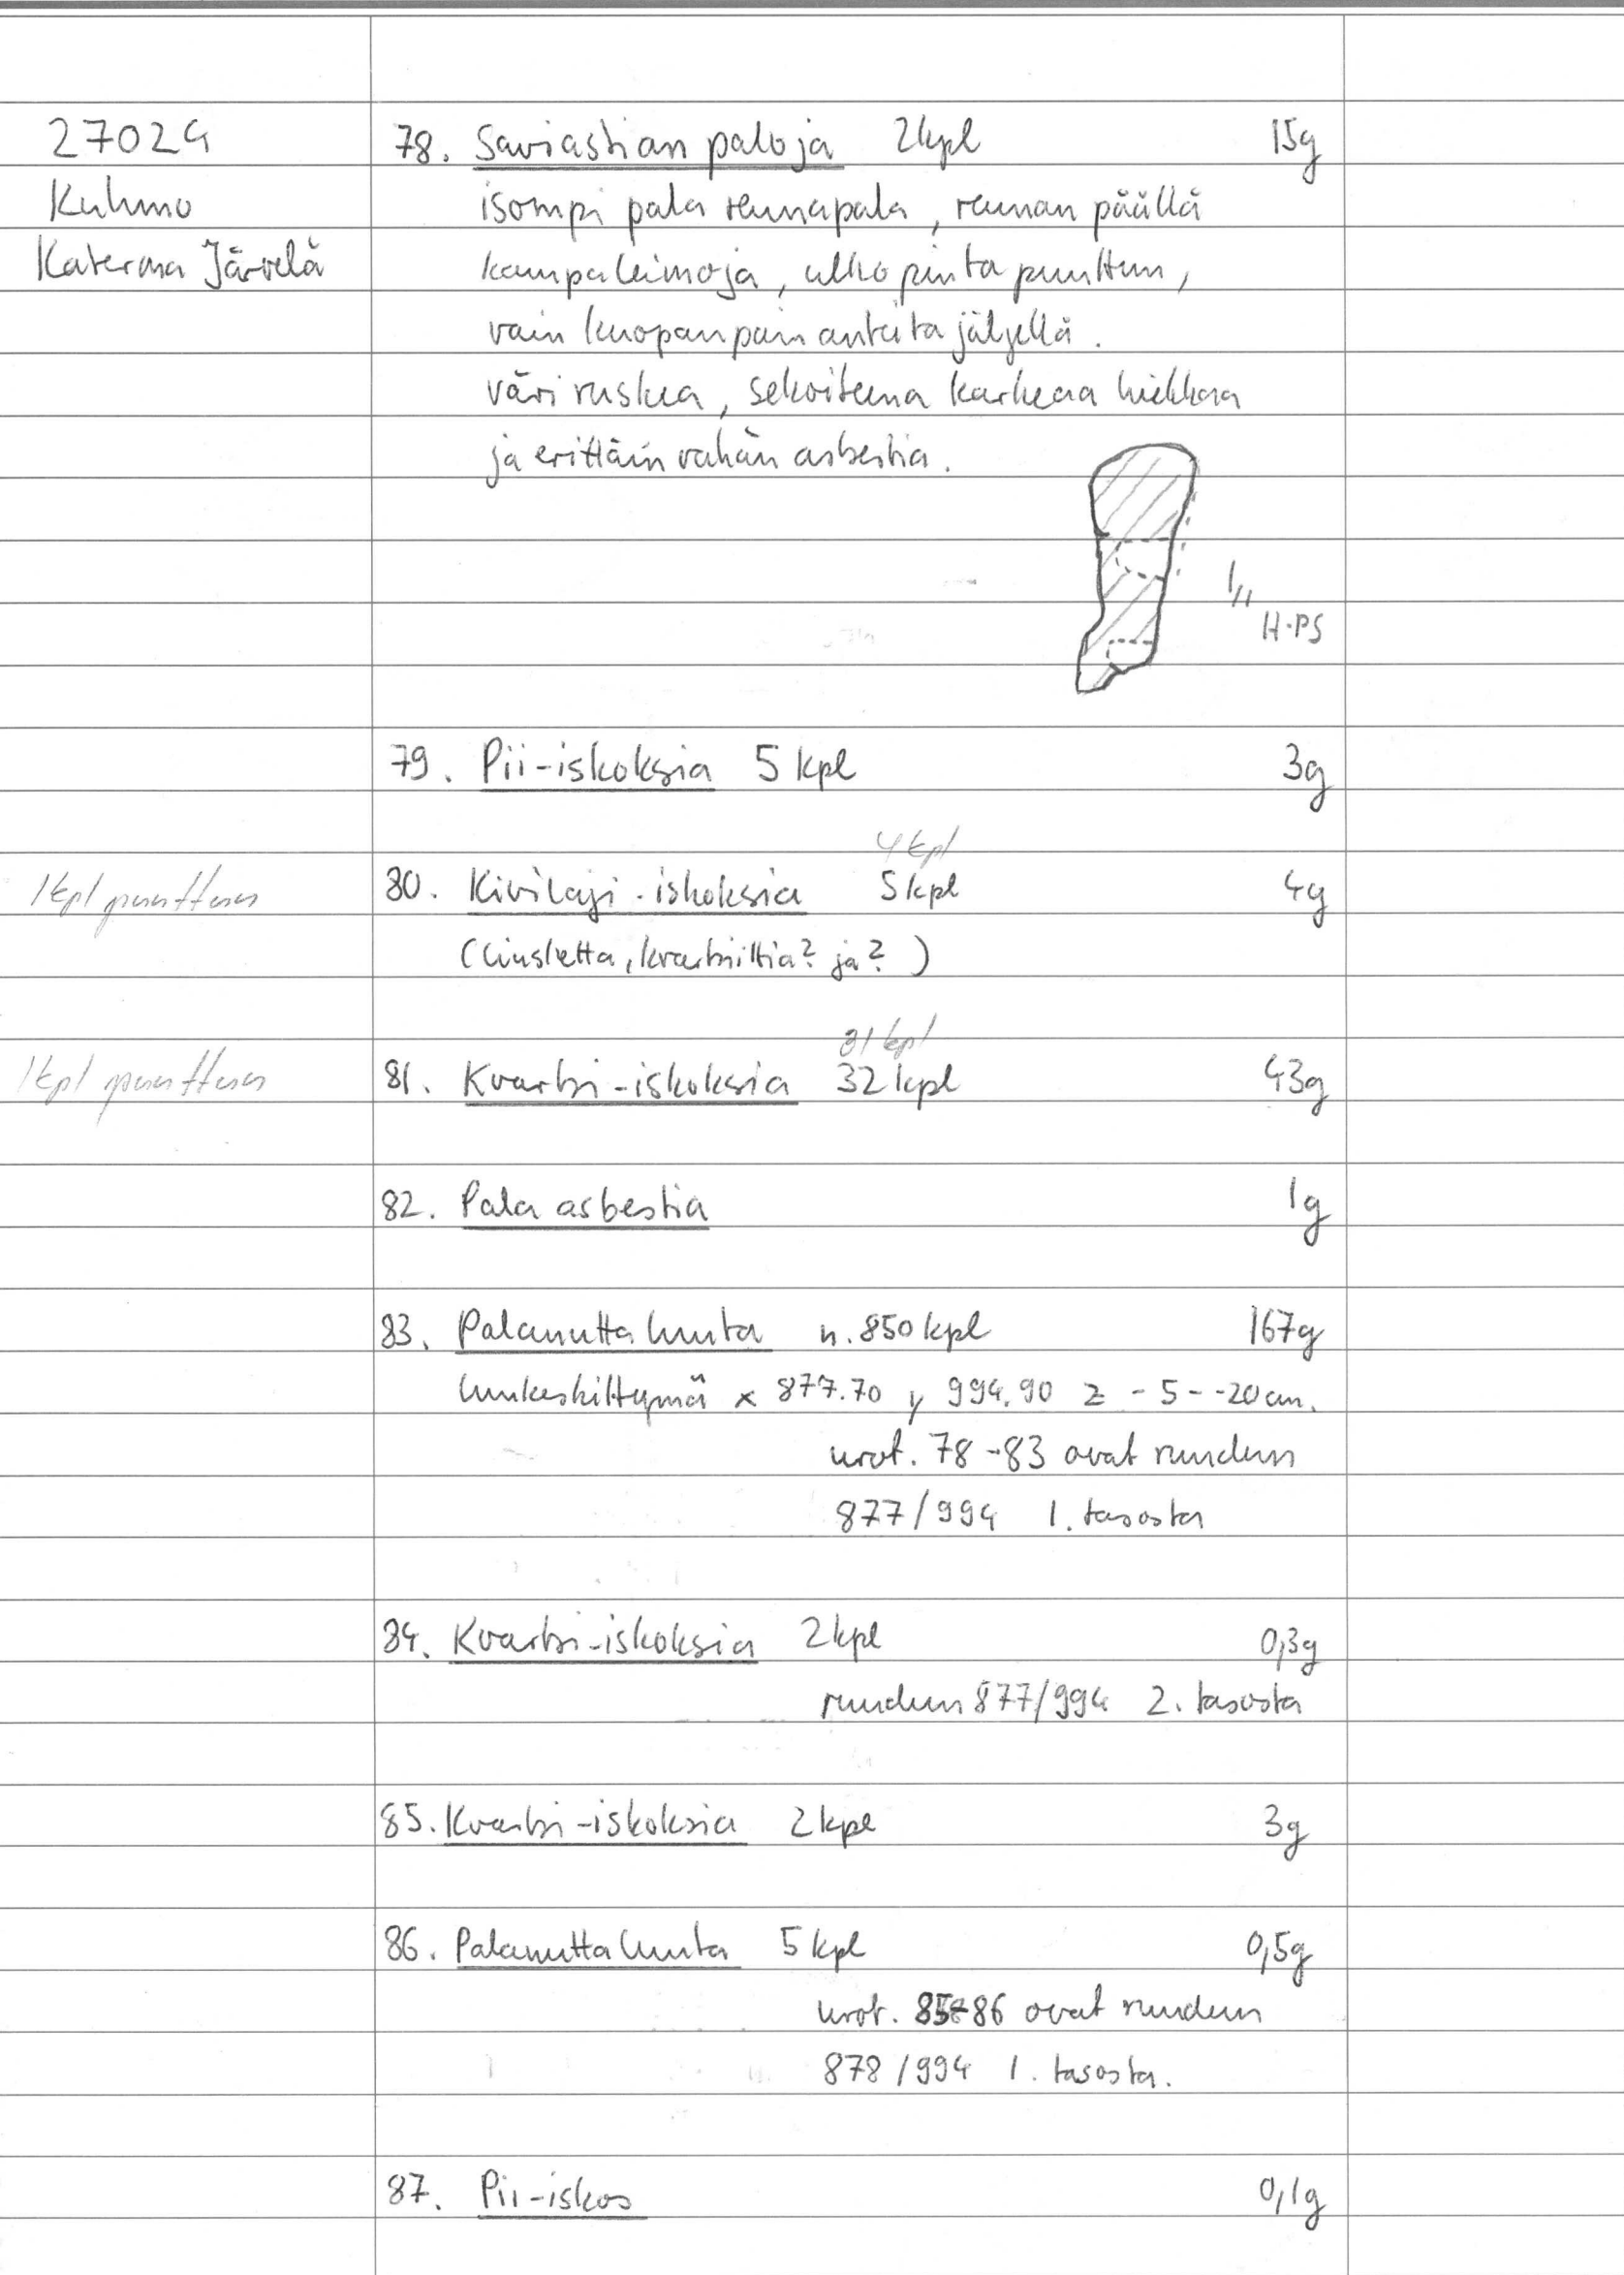 27024
Kuhmo
Katerma Järvelä
78. Saviastian paloja 2kpl 15g
isompi pala reunapala, reunan päällä
kampaleimoja, ulkopinta puuttuu,
vain kuopanpainanteita jäljellä.
väri ruskea, sekoiteena karkeaa hiekkaa
ja erittäin vähän asbestia.
1/1
H-PS
79. Pii-iskoksia 5 kpl 3g
4 kpl
1kpl puuttuu 80. Kivilaji-iskoksia 5kpl 4g
(liusketta, kvartsiittia? ja? )
31 kpl
1kpl puuttuu 81. Kvartsi-iskoksia 32kpl 43g
82. Pala asbestia 1g
83. Palanutta luuta n. 850kpl 167g
luukeskittymä x 877.70 y 994.90 z -5 - -20cm.
nrot. 78-83 ovat ruudun
877/994 1. tasosta
84. Kvartsi-iskoksia 2kpl 0,3g
ruudun 877/994 2. tasosta
85. Kvartsi-iskoksia 2kpl 3g
86. Palanutta luuta 5 kpl 0,5g
nrot. 85-86 ovat ruudun
878/994 1. tasosta.
87. Pii-iskos 0,1g